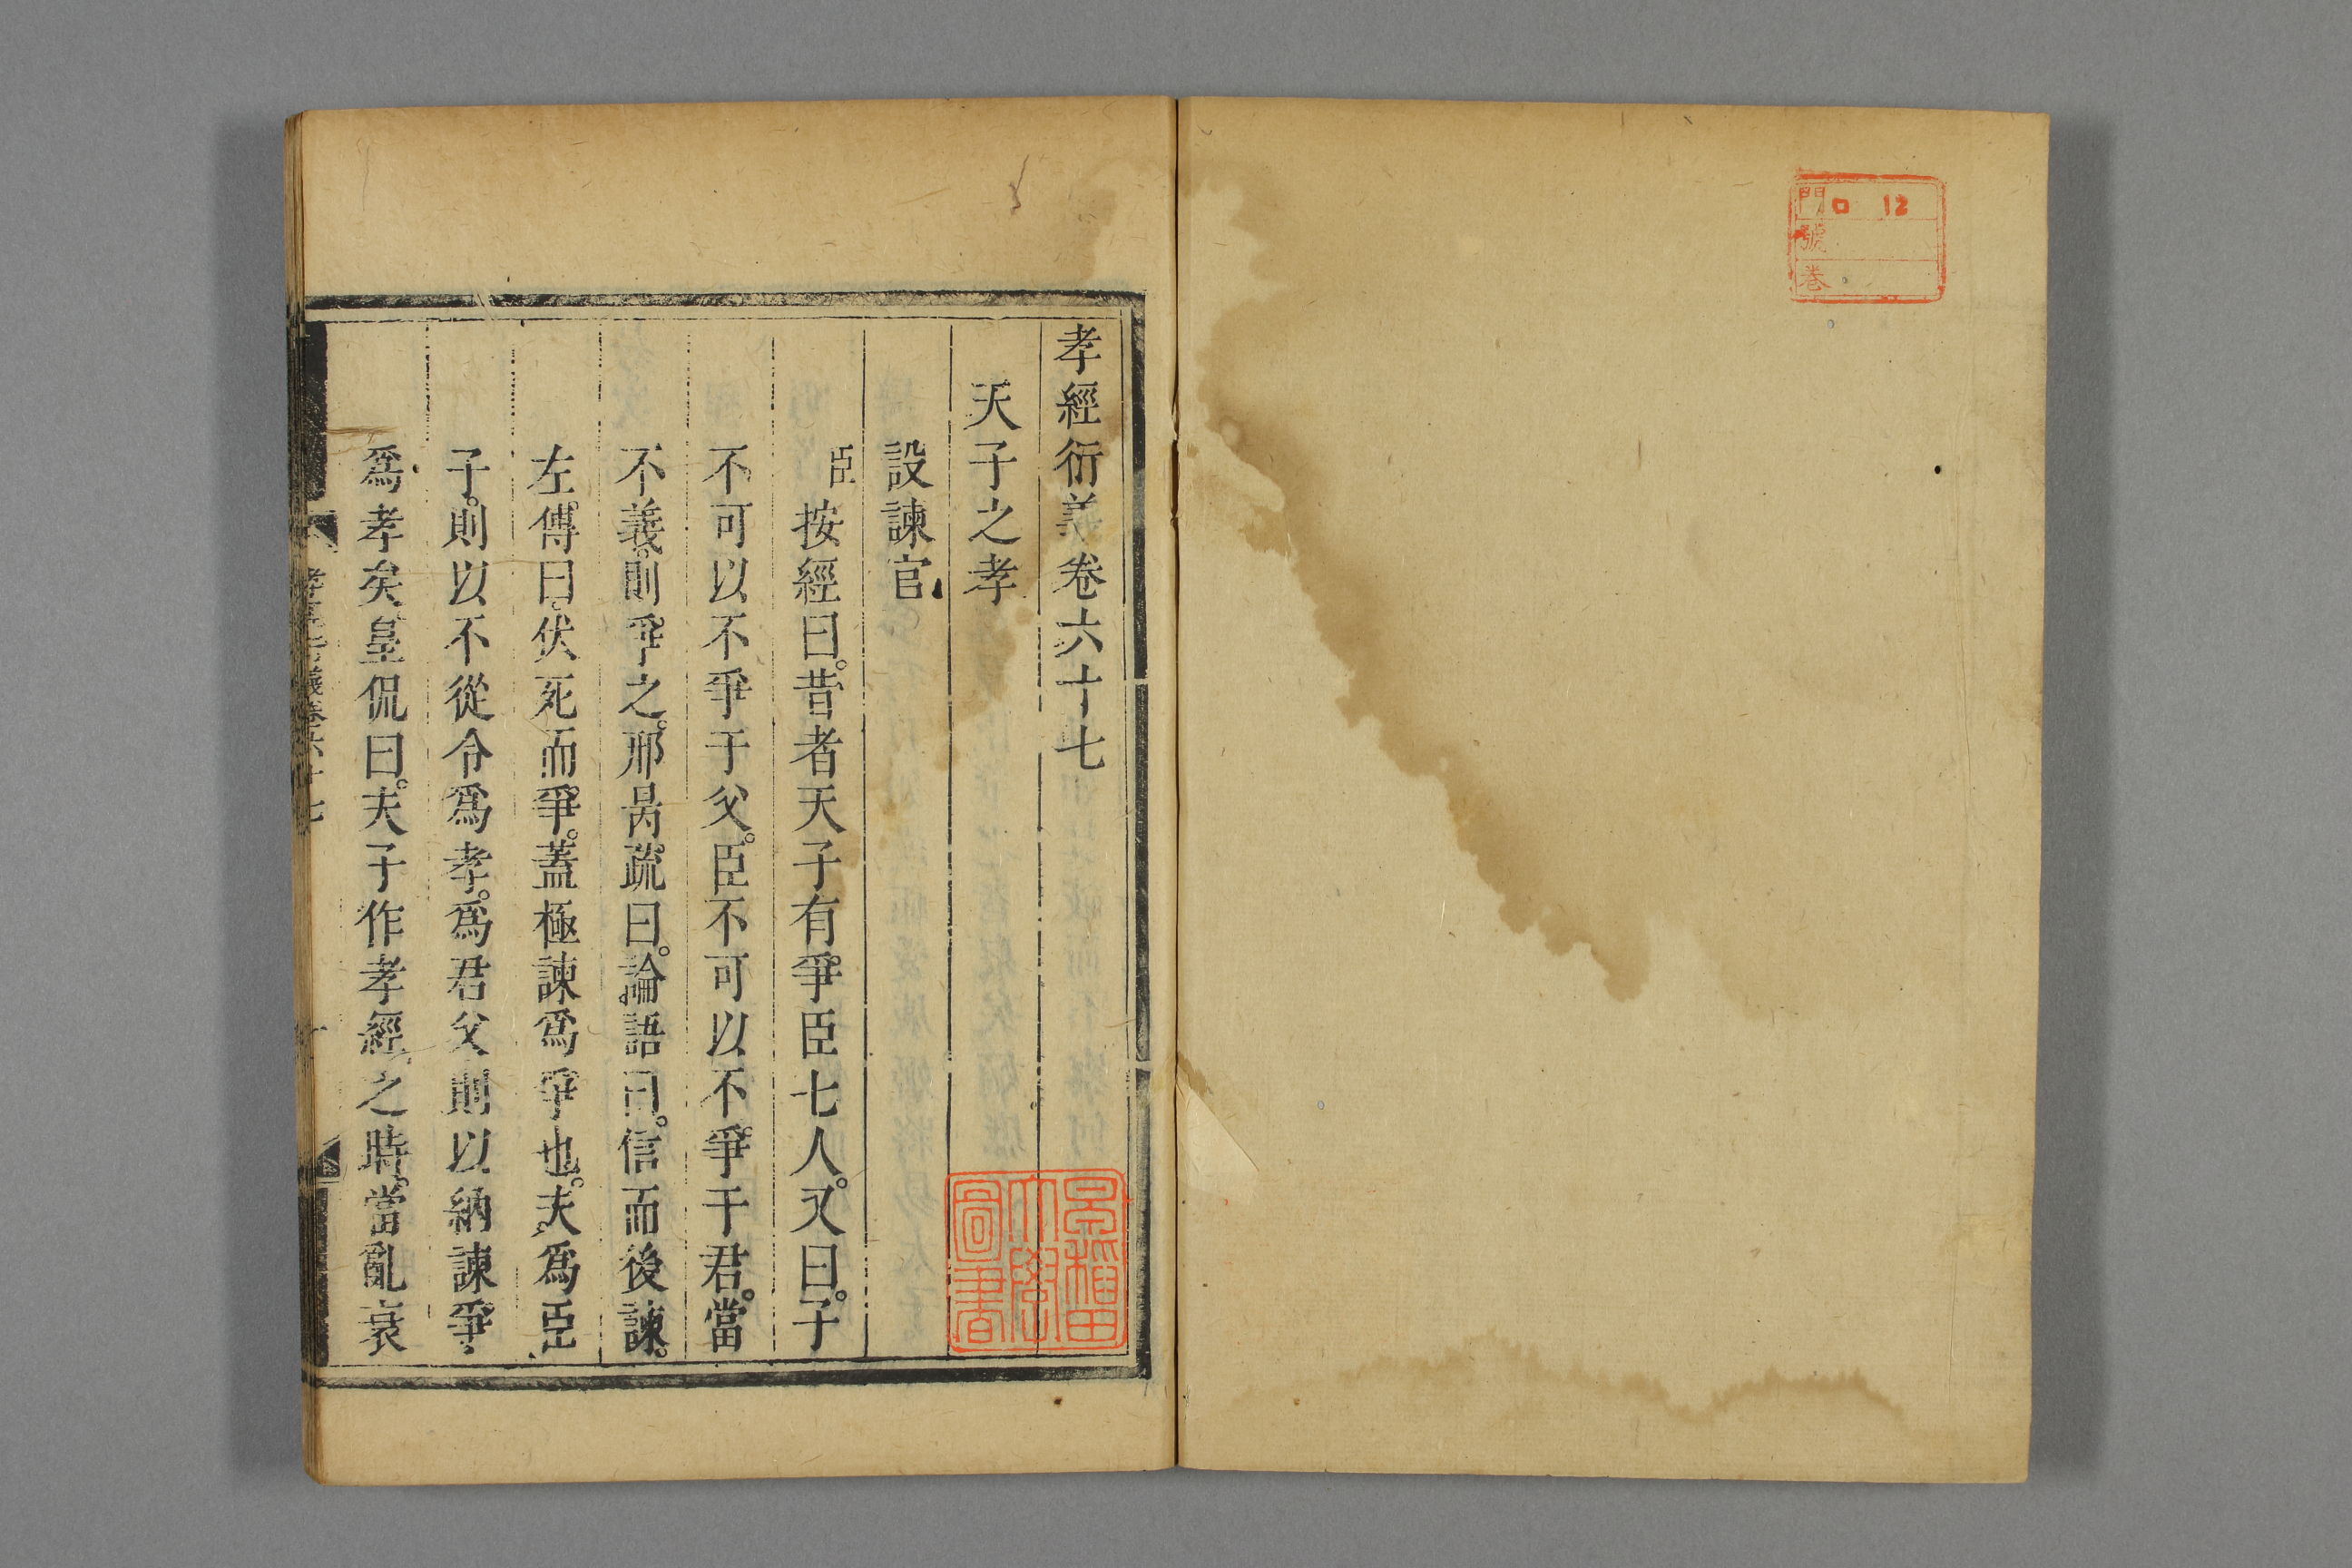 門 ロ 12
號
巻
孝經衍義卷六十七
天子之孝
設諫官
臣按經曰。昔者天子有爭臣七人。又曰。子
不可以不爭于父。臣不可以不爭于君。當
不義。則爭之。邢昺疏曰。論語曰。信而後諫。
左傳曰。伏死而爭。蓋極諫爲爭也。夫爲臣
子。則以不從令爲孝。爲君父則以納諫爭
爲孝矣。皇侃曰。夫子作孝經之時。當亂衰
孝經衍義卷六十七 一
早稻田
大學
圖書